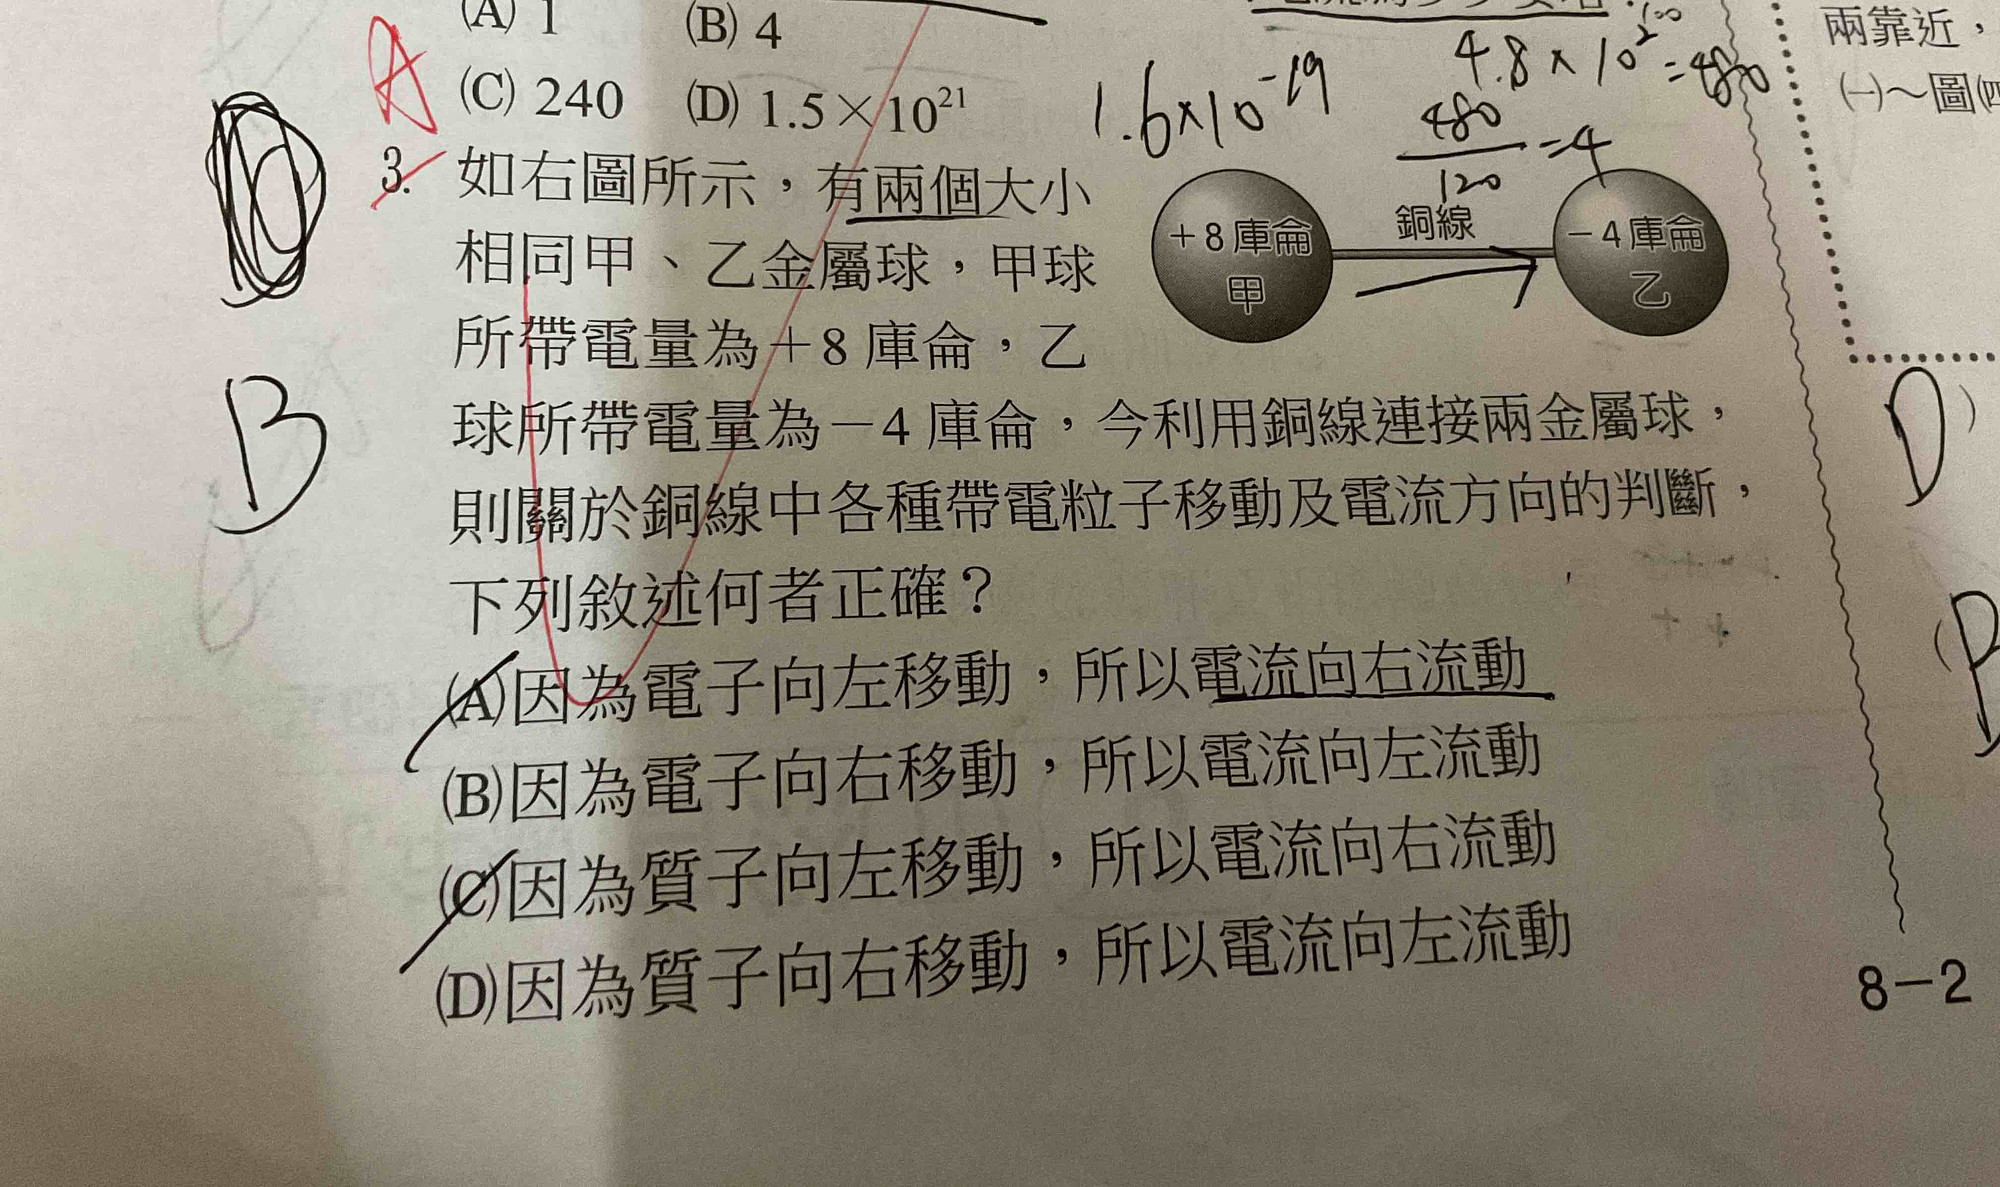 (A) 1 (B) 4
(C) 240 (D) 1.5×10²¹
A
1.6×10⁻¹⁹
4.8×10² = 480
480
120
=4
3. 如右圖所示，有兩個大小
相同甲、乙金屬球，甲球
所帶電量為＋8 庫侖，乙
球所帶電量為－4 庫侖，今利用銅線連接兩金屬球，
則關於銅線中各種帶電粒子移動及電流方向的判斷，
下列敘述何者正確？
+8 庫侖
甲
銅線
－4 庫侖
乙
B
(A)因為電子向左移動，所以電流向右流動
(B)因為電子向右移動，所以電流向左流動
(C)因為質子向左移動，所以電流向右流動
(D)因為質子向右移動，所以電流向左流動
兩靠近，
㈠～圖㈣
D )
(B
8－2